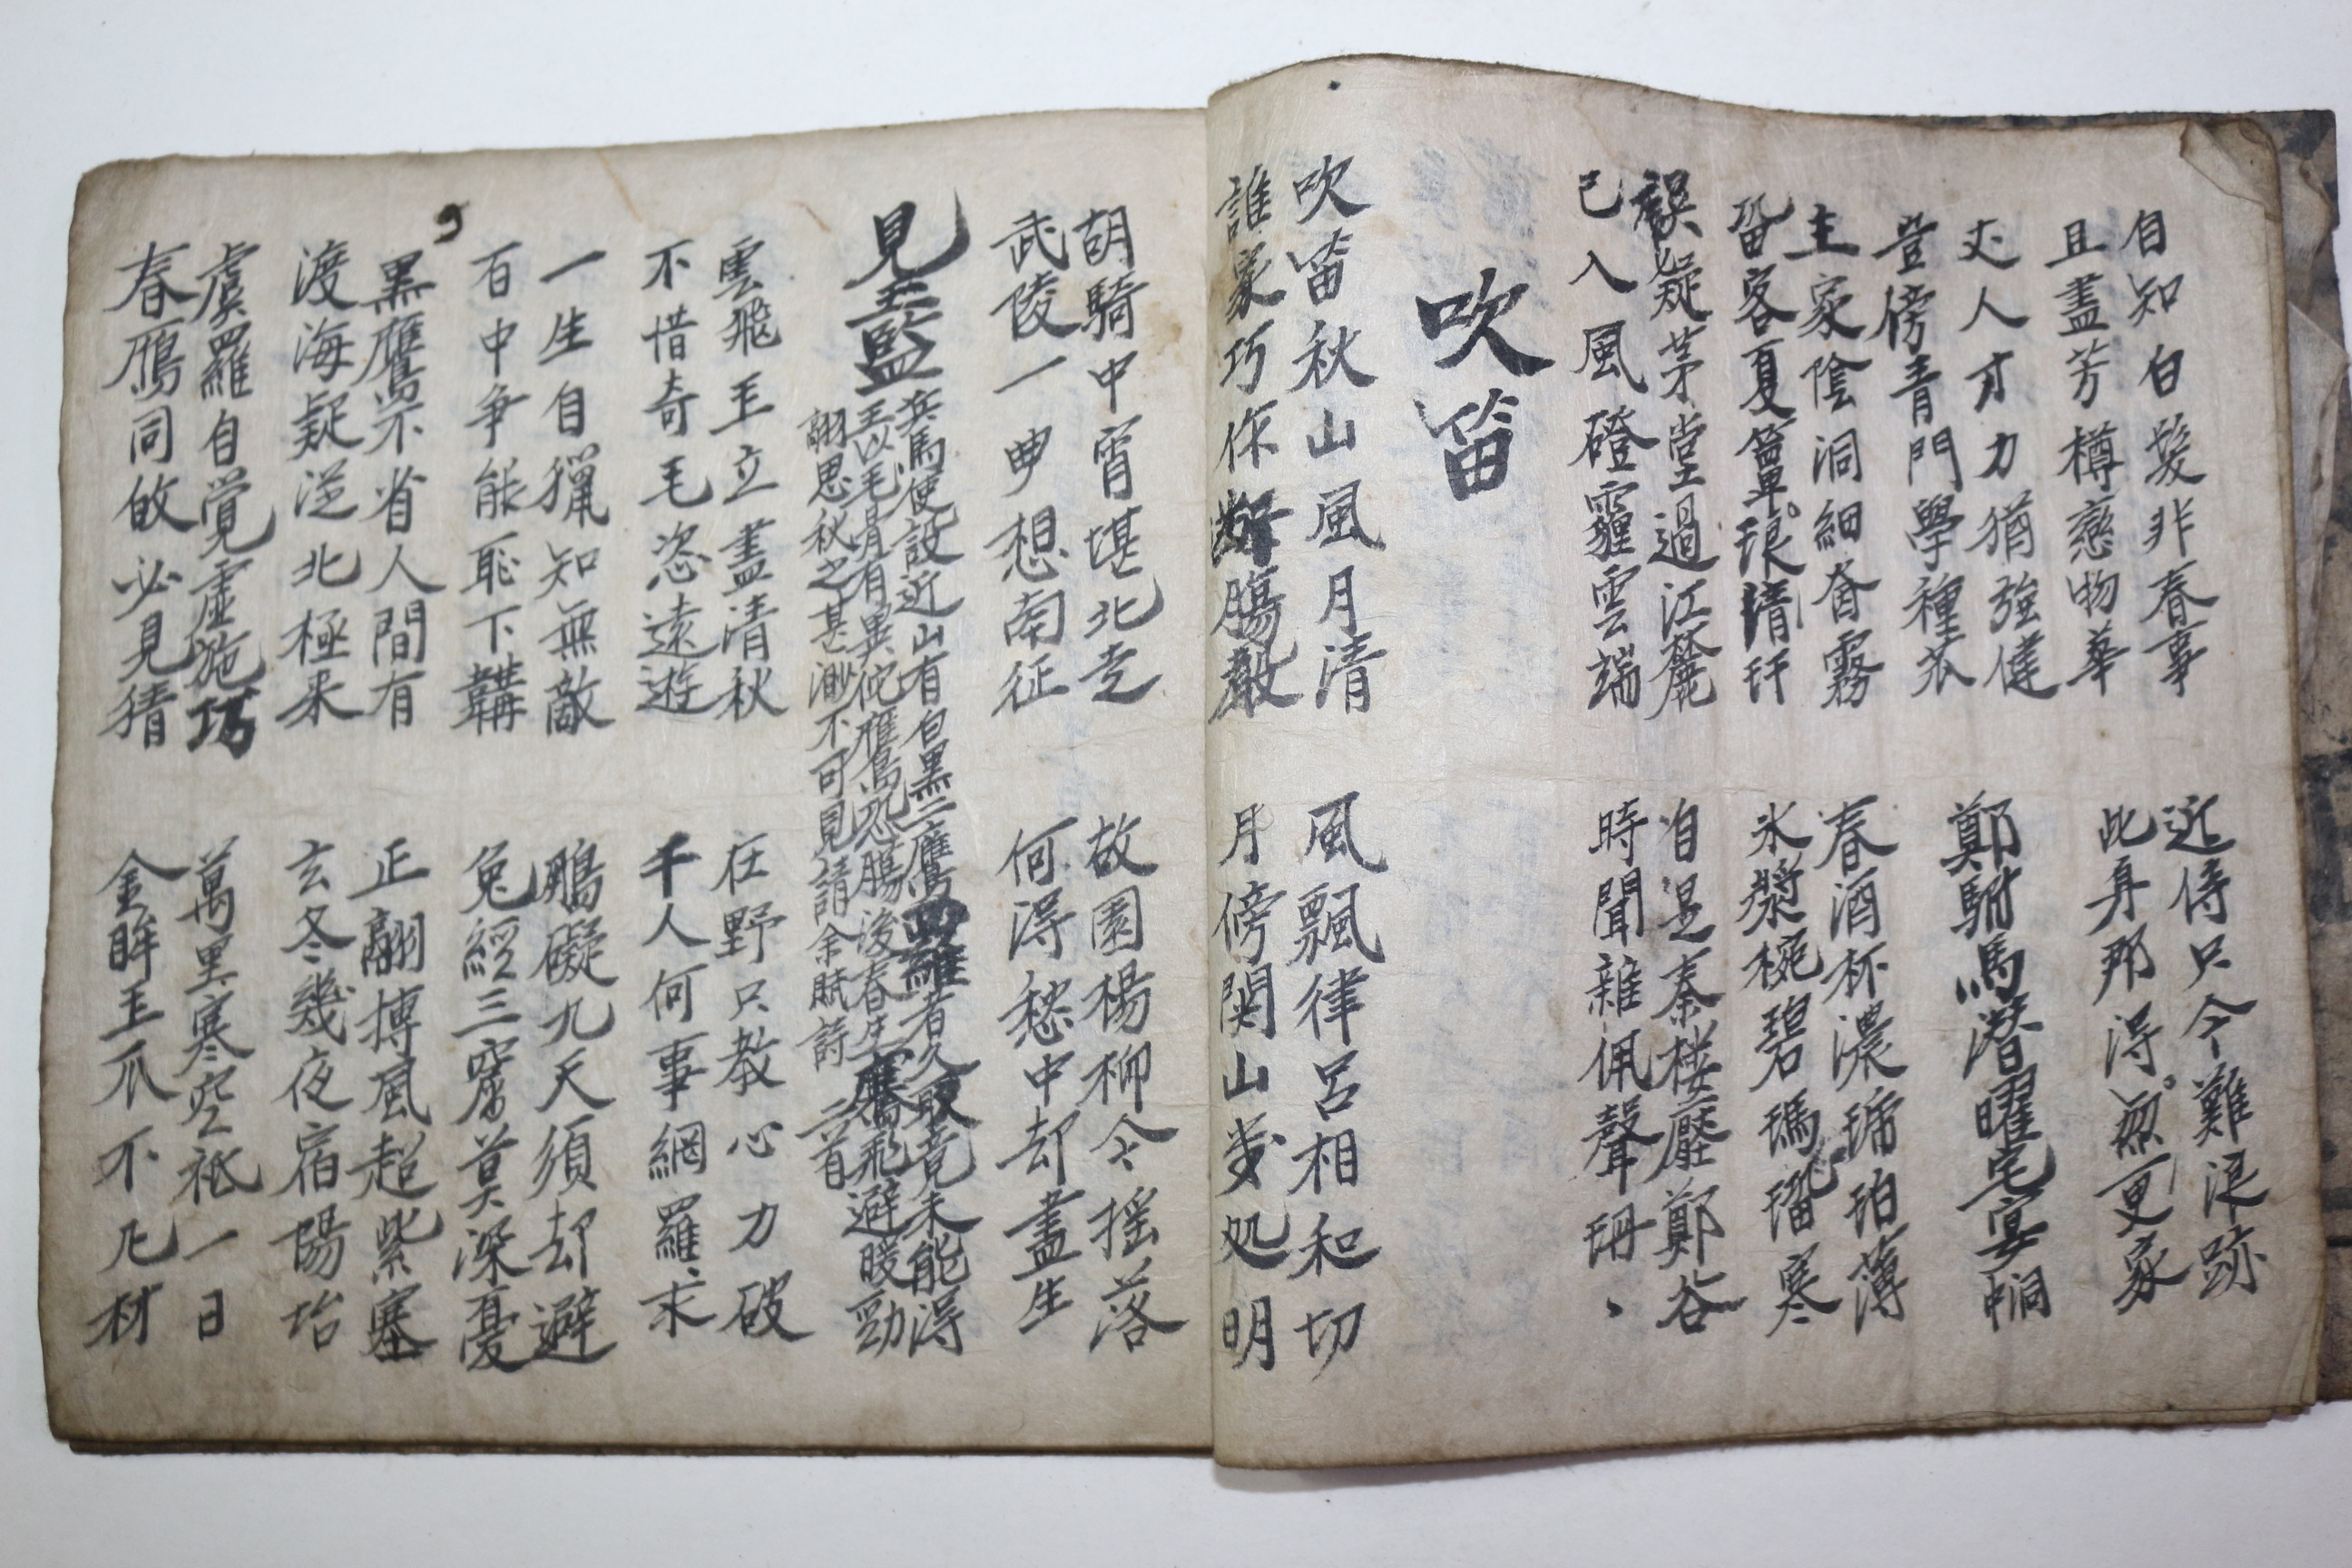 自知白髮非春事
且盡芳樽戀物華
近侍只今難浪跡
此身那得無更家
丈人才力猶強健
豈傍青門學種苽
鄭駙馬潛曜宅宴㓊
主家陰洞細香霧
留客夏簟琅清玕
春酒杯濃琥珀薄
氷漿椀碧瑪瑙寒
誤疑茅堂過江麓
已入風磴霾雲端
自是秦楼壓鄭谷
時聞雜佩聲珊、
吹笛
吹笛秋山風月清
誰家巧作斷膓聲
風飄律呂相和切
月傍関山幾処明
胡騎中宵堪北走
武陵一曲想南征
故園楊柳今搖落
何得愁中却盡生
見王監兵馬使設近山有白黑二鷹羅者久取竟未能得
王以毛骨有異他鷹恐臈後春生騫飛避暖勁
翮思秋之甚渺不可見請余賦詩二首
雲飛玉立盡清秋
不惜奇毛恣遠遊
在野只教心力破
千人何事網羅求
一生自獵知無敵
百中争能恥下鞲
鵬礙九天須却避
兔經三窟莫深憂
黒鷹不省人間有
渡海疑從北極来
正翮搏風超紫塞
玄冬幾夜宿陽㙜
虞羅自覚虛施巧
春鴈同故必見猜
萬里寒空祗一日
金眸玉爪不凡材